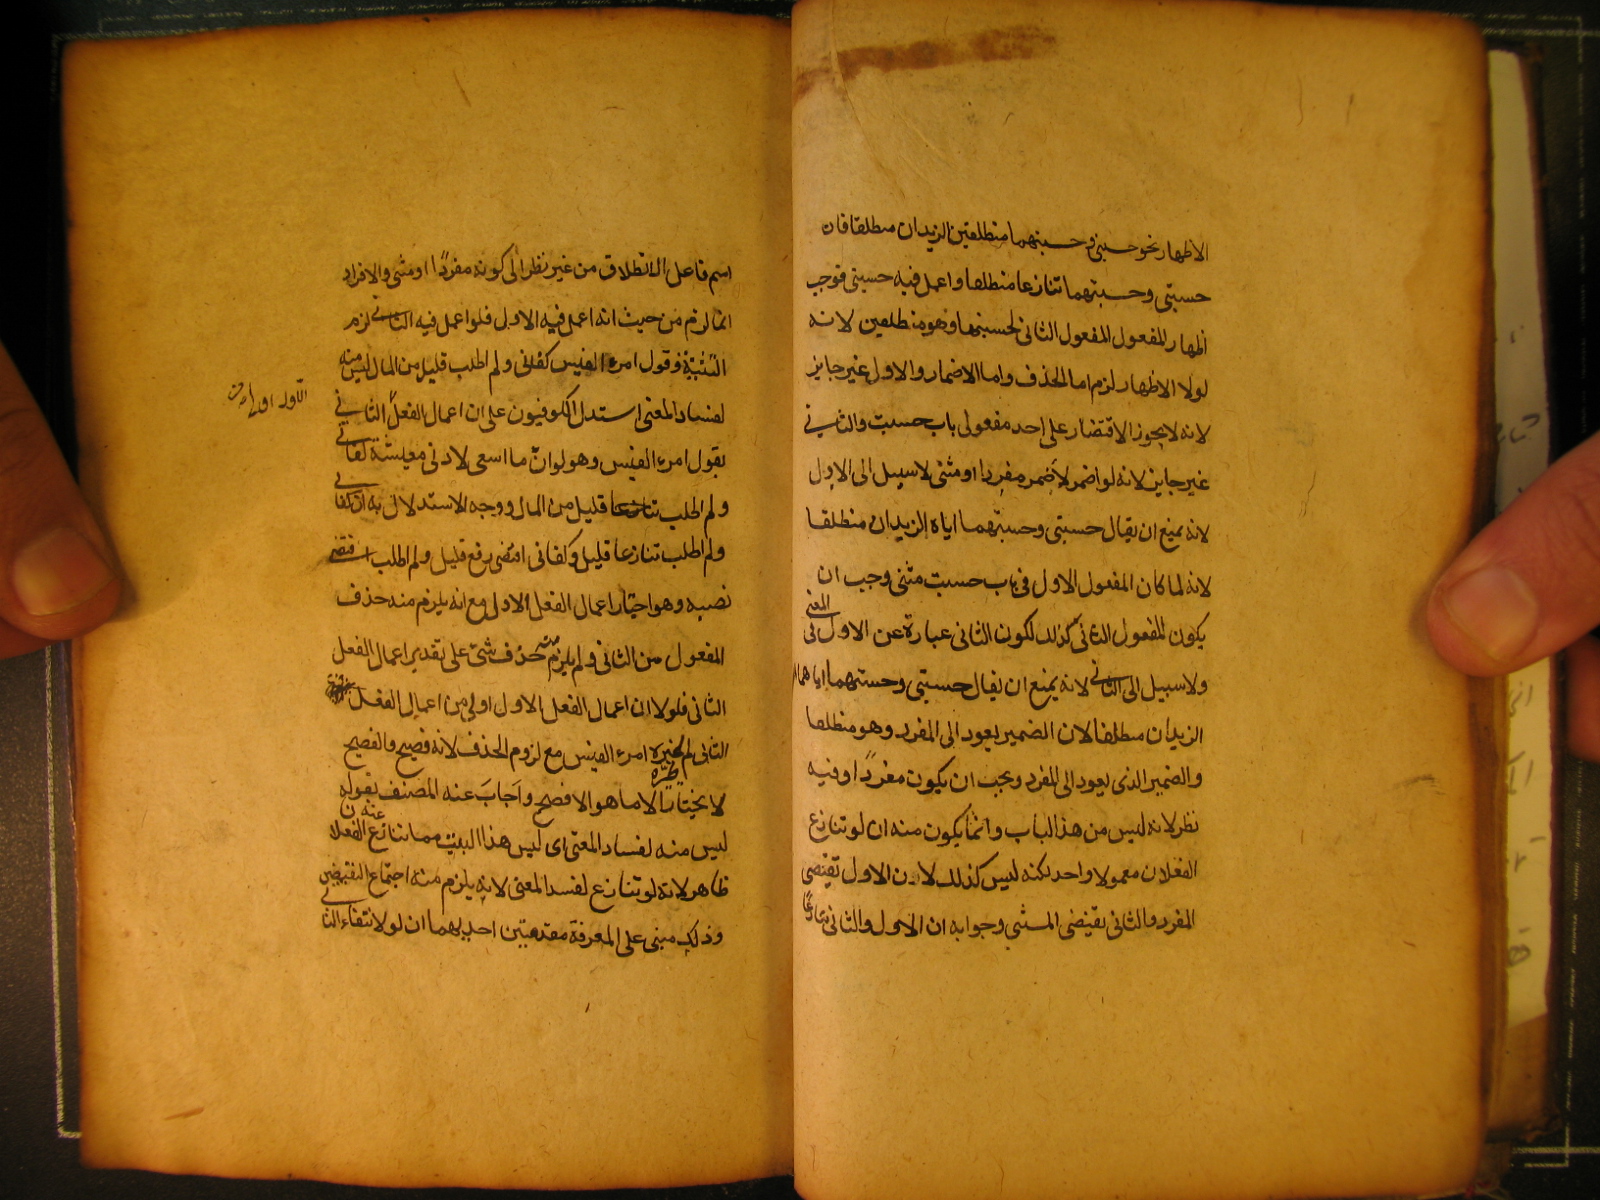 الاظهار نحو حسبني وحسبتهما منطلقين الزيدان منطلقا فان
حسبني وحسبتهما تنازعا منطلقا واعمل فيه حسبني فوجب
اظهار المفعول المفعول الثاني لحسبتهما وهو منطلقين لانه
لولا الاظهار لزم اما الحذف واما الاضمار والاول غير جايز
لانه لا يجوز الاقتصار على احد مفعولى باب حسبت والثاني
غير جايز لانه لو اضمر لأضمر مفردا او مثنى لا سبيل الى الاول
لانه يمنع ان يقال حسبني وحسبتهما اياه الزيدان منطلقا
لانه لما كان المفعول الاول في باب حسبت مثنى وجب ان
يكون المفعول الثاني كذلك لكون الثاني عبارة عن الاول في المعنى
ولا سبيل الى الثاني لانه يمنع ان يقال حسبني وحسبتهما اياهما
الزيدان منطلقا لان الضمير يعود الى المفرد وهو منطلقا
والضمير الذى يعود الى المفرد ويجب ان يكون مفردًا وفيه
نظر لانه ليس من هذا الباب وانما يكون منه ان لو تنازع
الفعلان معمولا واحد لكنه ليس كذلك لان الاول تقتضى
المفرد والثاني تقتضى المثنى وجوابه ان الاول والثاني تنازعا
اسم فاعل الانطلاق من غير نظر الى كونه مفردًا او مثنى والافراد
انما لزم من حيث انه اعمل فيه الاول فلو اعمل فيه الثاني لزم
التثنية وقول امرء القيس كفاني ولم اطلب قليل من المال ليس منه
لفساد المعنى استدل الكوفيون على ان اعمال الفعل الثاني
الاول اولى من
بقول امرء القيس وهو لو ان ما اسعى لادنى معيشة كفاني
ولم اطلب قليل من المال ووجه الاستدلال به ان كفاني
ولم اطلب تنازعا قليل وكفاني اقتضى رفع قليل ولم اطلب اقتضى
نصبه وهو اختار اعمال الفعل الاول مع انه يلزم منه حذف
المفعول من الثاني ولم يلزم منه حذف شئ على تقدير اعمال الفعل
الثاني فلولا ان اعمال الفعل الاول اولى من اعمال الفعل
الثاني لم يختره امرء القيس مع لزوم الحذف لانه فصيح والفصيح
لا يختار الا ما هو الافصح واجاب عنه المصنف بقوله
ليس منه لفساد المعنى اى ليس هذا البيت مما تنازع عنه الفعلان
ظاهر لانه لو تنازع لفسد المعنى لانه يلزم منه اجتماع النقيضين
وذلك مبنى على المعرفة مقدمتين احديهما ان لو لانتفاء الثاني